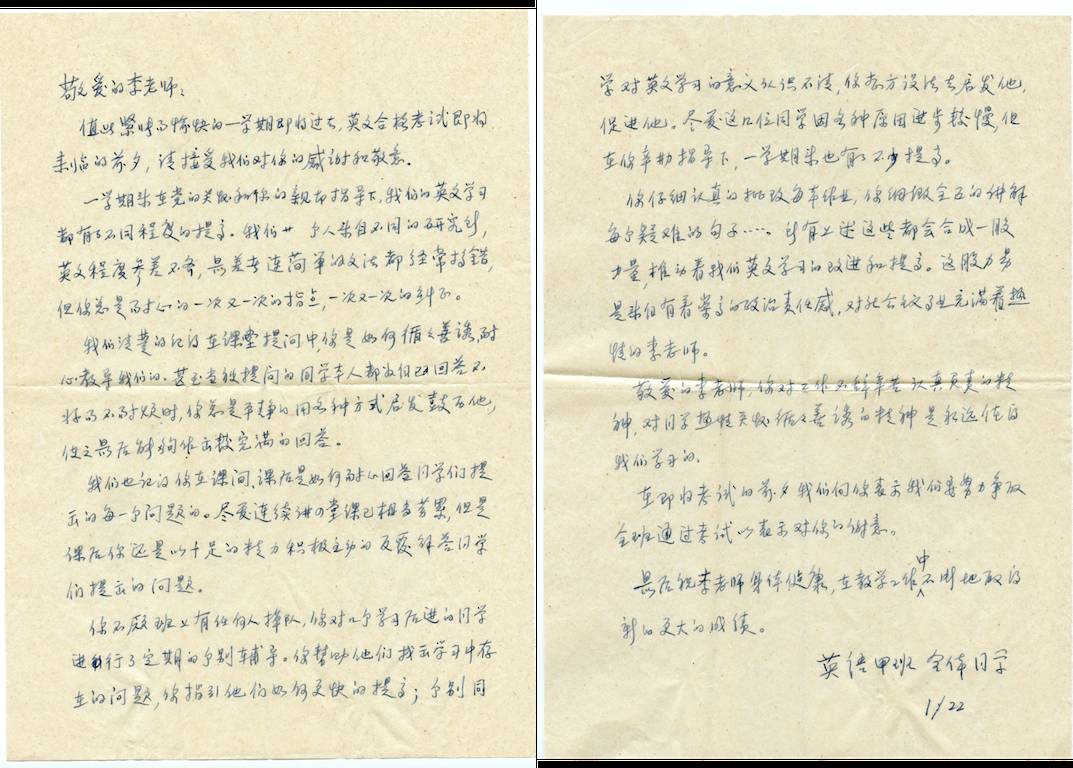 敬爱的李老师：
值此紧张而愉快的一学期即将过去，英文合格考试即将
来临的前夕，请接受我们对你的感谢和敬意。
一学期来在党的关怀和你的亲切指导下，我们的英文学习
都有了不同程度的提高。我们廿个人来自不同的研究所，
英文程度参差不齐，最差者连简单的文法都经常搞错，
但你总是耐心的一次又一次的指点，一次又一次的纠正。
我们清楚的记得在课堂提问中，你是如何循循善诱，耐
心教导我们的。甚至当被提问的同学本人都为自己回答不
好而不耐烦时，你总是平静的用各种方式启发鼓舞他，
使之最后能够作出较完满的回答。
我们也记得你在课间，课后是如何耐心回答同学们提
出的每一个问题的。尽管连续讲四堂课已相当劳累，但是
课后你还是以十足的精力积极主动的反复解答同学
们提出的问题。
你不愿班上有任何人掉队，你对几个学习后进的同学
进行了定期的个别辅导。你帮助他们找出学习中存
在的问题，你指引他们如何更快的提高；个别同
学对英文学习的意义认识不清，你想方设法去启发他，
促进他。尽管这几位同学因各种原因进步较慢，但
在你辛勤指导下，一学期来也有了不少提高。
你仔细认真的批改每本作业，你细微全面的讲解
每个疑难的句子……所有上述这些都会合成一股
力量，推动着我们英文学习的改进和提高。这股力量
是来自有着崇高的政治责任感，对社会主义事业充满着热
情的李老师。
敬爱的李老师，你对工作不辞辛苦认真负责的精
神，对同学热情关怀循循善诱的精神是永远值得
我们学习的。
在即将考试的前夕我们向你表示我们要努力争取
全班通过考试以表示对你的谢意。
最后祝李老师身体健康，在教学工作中不断地取得
新的更大的成绩。
英语甲班 全体同学
1/22